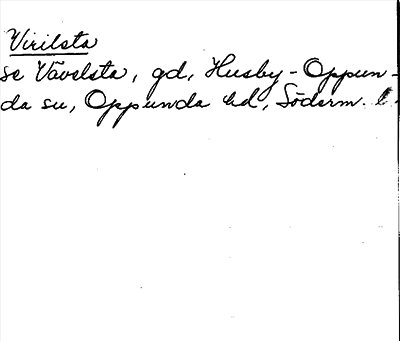 Virilsta
se Vävelsta, gd, Husby-Oppun-
da sn, Oppunda hd, Söderm. l.